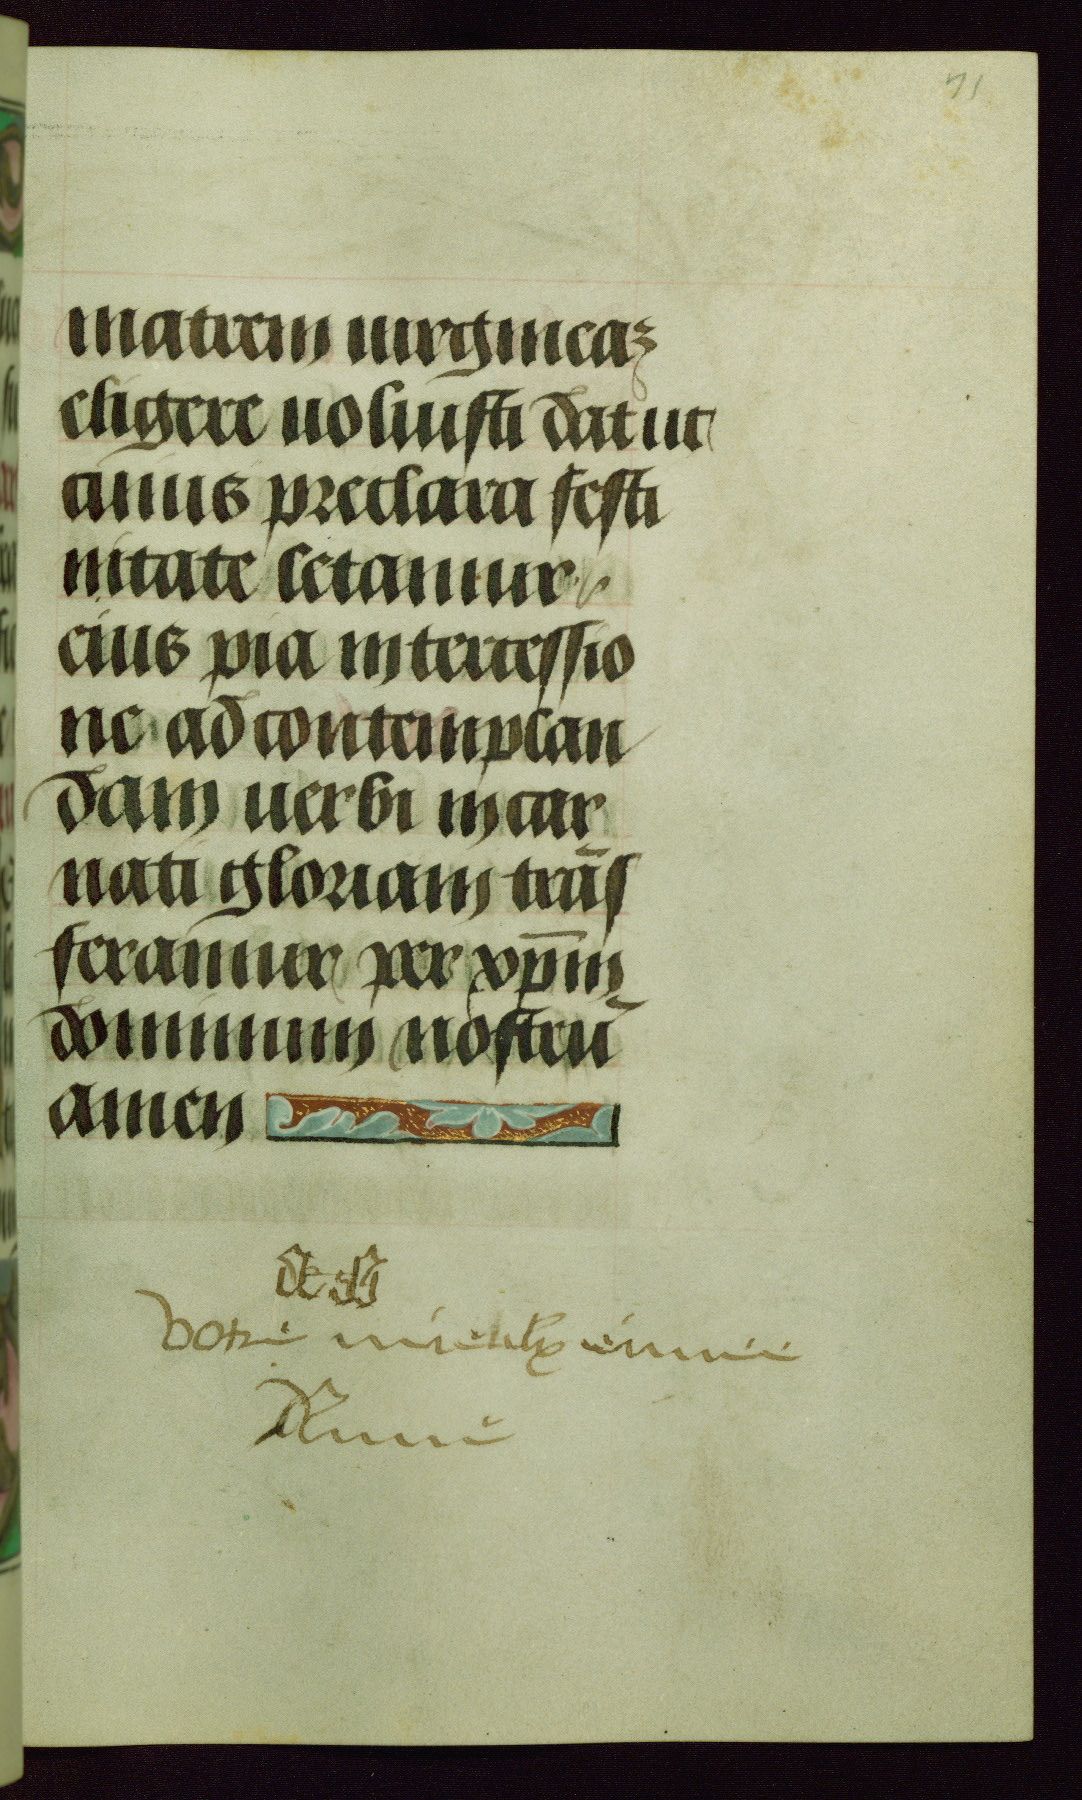 71
matrem uirgineaz
eligere uoluisti dat ut
cuius preclara festi
uitate letamur
eius pia intercessio
ne ad contemplan
dam uerbi incar
nati gloriam trās
feramur per xp̄m
dominum nostrū
amen